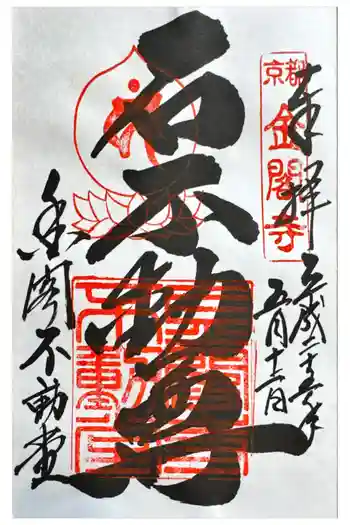 奉拝
京都
金閣寺
平成二十六年
五月十二日
石不動尊
金閣不動堂